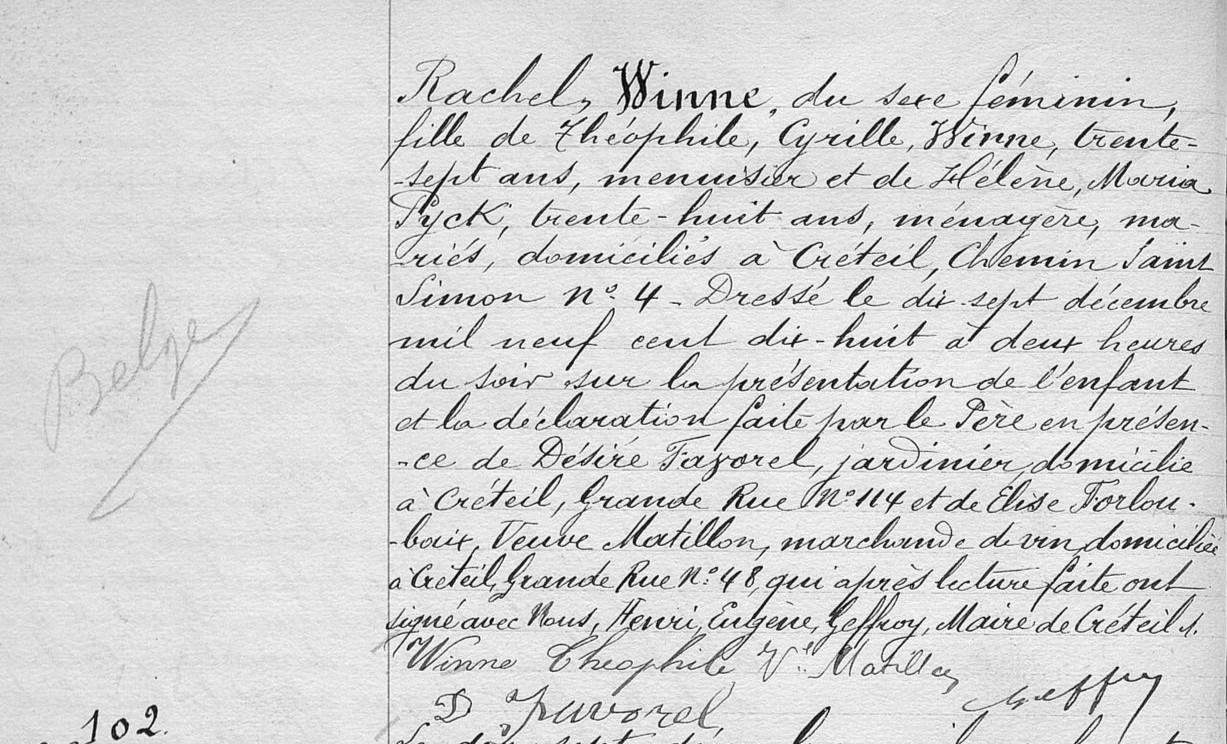 Rachel, Winne, du sexe féminin,
fille de Théophile, Cyrille, Winne, trente-
-sept ans, menuisier et de Hélène, Maria
Pyck, trente-huit ans, ménagère, ma-
-riés, domiciliés à Créteil, Chemin Saint
Simon n° 4 - Dressé le dix-sept décembre
mil neuf cent dix-huit à deux heures
du soir sur la présentation de l'enfant
et la déclaration faite par le Père en présen-
-ce de Désiré Favorel, jardinier, domicilié
à Créteil, Grande Rue N° 114 et de Elise Forlou-
-baix, Veuve Matillon, marchande de vin, domiciliée
à Créteil, Grande Rue N° 48, qui après lecture faite ont
signé avec Nous, Henri, Eugène, Geffroy, Maire de Créteil ./.
Belge
Winne Theophile Ve Matillon
Geffroy
D Favorel
102.